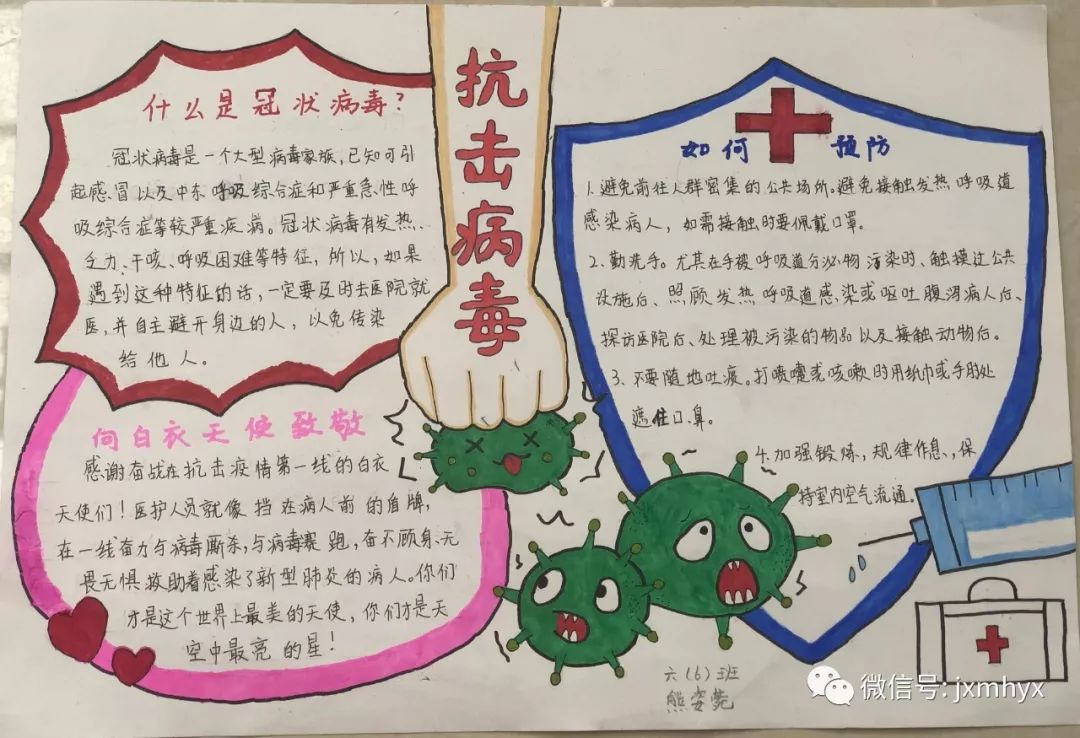 抗击病毒
什么是冠状病毒?
冠状病毒是一个大型病毒家族,已知可引
起感冒以及中东呼吸综合症和严重急性呼
吸综合症等较严重疾病。冠状病毒有发热、
乏力、干咳、呼吸困难等特征,所以,如果
遇到这种特征的话,一定要及时去医院就
医,并自主避开身边的人,以免传染
给他人。
向白衣天使致敬
感谢奋战在抗击疫情第一线的白衣
天使们!医护人员就像挡在病人前的盾牌,
在一线奋力与病毒厮杀,与病毒赛跑,奋不顾身、无
畏无惧救助着感染了新型肺炎的病人。你们
才是这个世界上最美的天使,你们才是天
空中最亮的星!
如何预防
1.避免前往人群密集的公共场所。避免接触发热呼吸道
感染病人,如需接触时要佩戴口罩。
2.勤洗手。尤其在手被呼吸道分泌物污染时、触摸过公共
设施后、照顾发热呼吸道感染或呕吐腹泻病人后、
探访医院后、处理被污染的物品以及接触动物后。
3.不要随地吐痰。打喷嚏或咳嗽时用纸巾或手肘处
遮住口、鼻。
4.加强锻炼,规律作息、保
持室内空气流通。
六(6)班
熊姿菀
微信号: jxmhyx